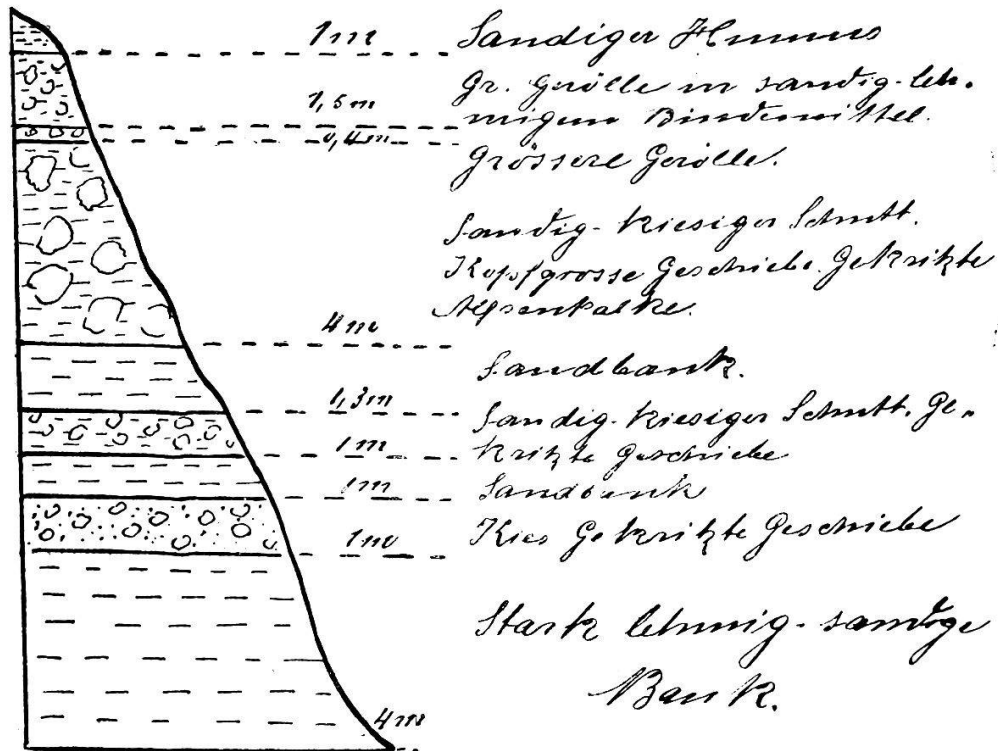 1m Sandiger Humus
Gr. Gerölle in sandig-leh-
1,5m migem Bindemittel.
0,4m
Grössere Gerölle.
Sandig-kiesiger Schutt.
Kopfgrosse Geschiebe. Gekritzte
Alpenkalke.
4m
Sandbank.
1,3m
Sandig-kiesiger Schutt. Ge-
1m kritzte Geschiebe
1m Sandbank
1m Kies Gekritzte Geschiebe
Stark lehmig-sandige
Bank.
4m